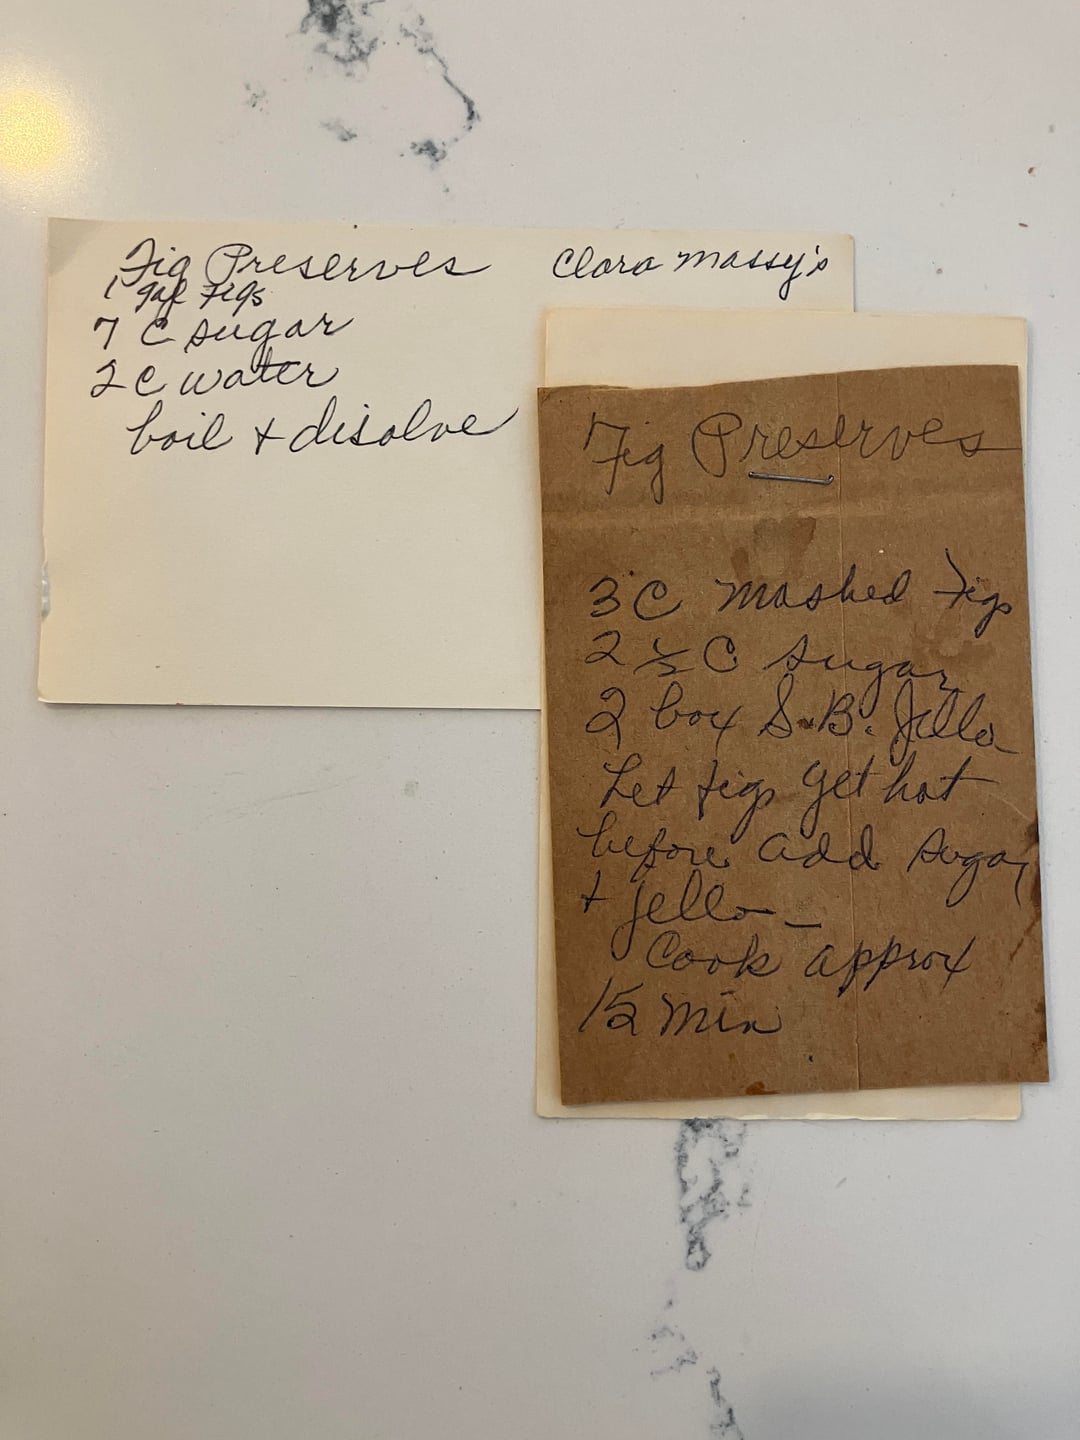 Fig Preserves Clara Massy's
1 gal Figs
7 C sugar
2 C water
boil + disolve
Fig Preserves
3 C Mashed Figs
2 ½ C sugar
2 box S.B. Jello
Let figs get hot
before add sugar
+ jello -
Cook approx
15 min